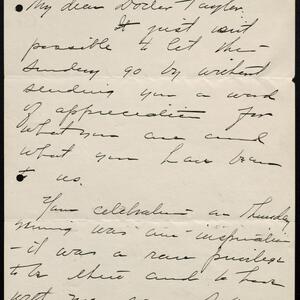 My dear Doctor Taylor.
It just isn't
possible to let the
Sunday go by without
sending you a word
of appreciation for
what you are and
what you have been
to us.
Your celebration on Thursday
was an inspiration
- it was a rare privilege
to be there and to have